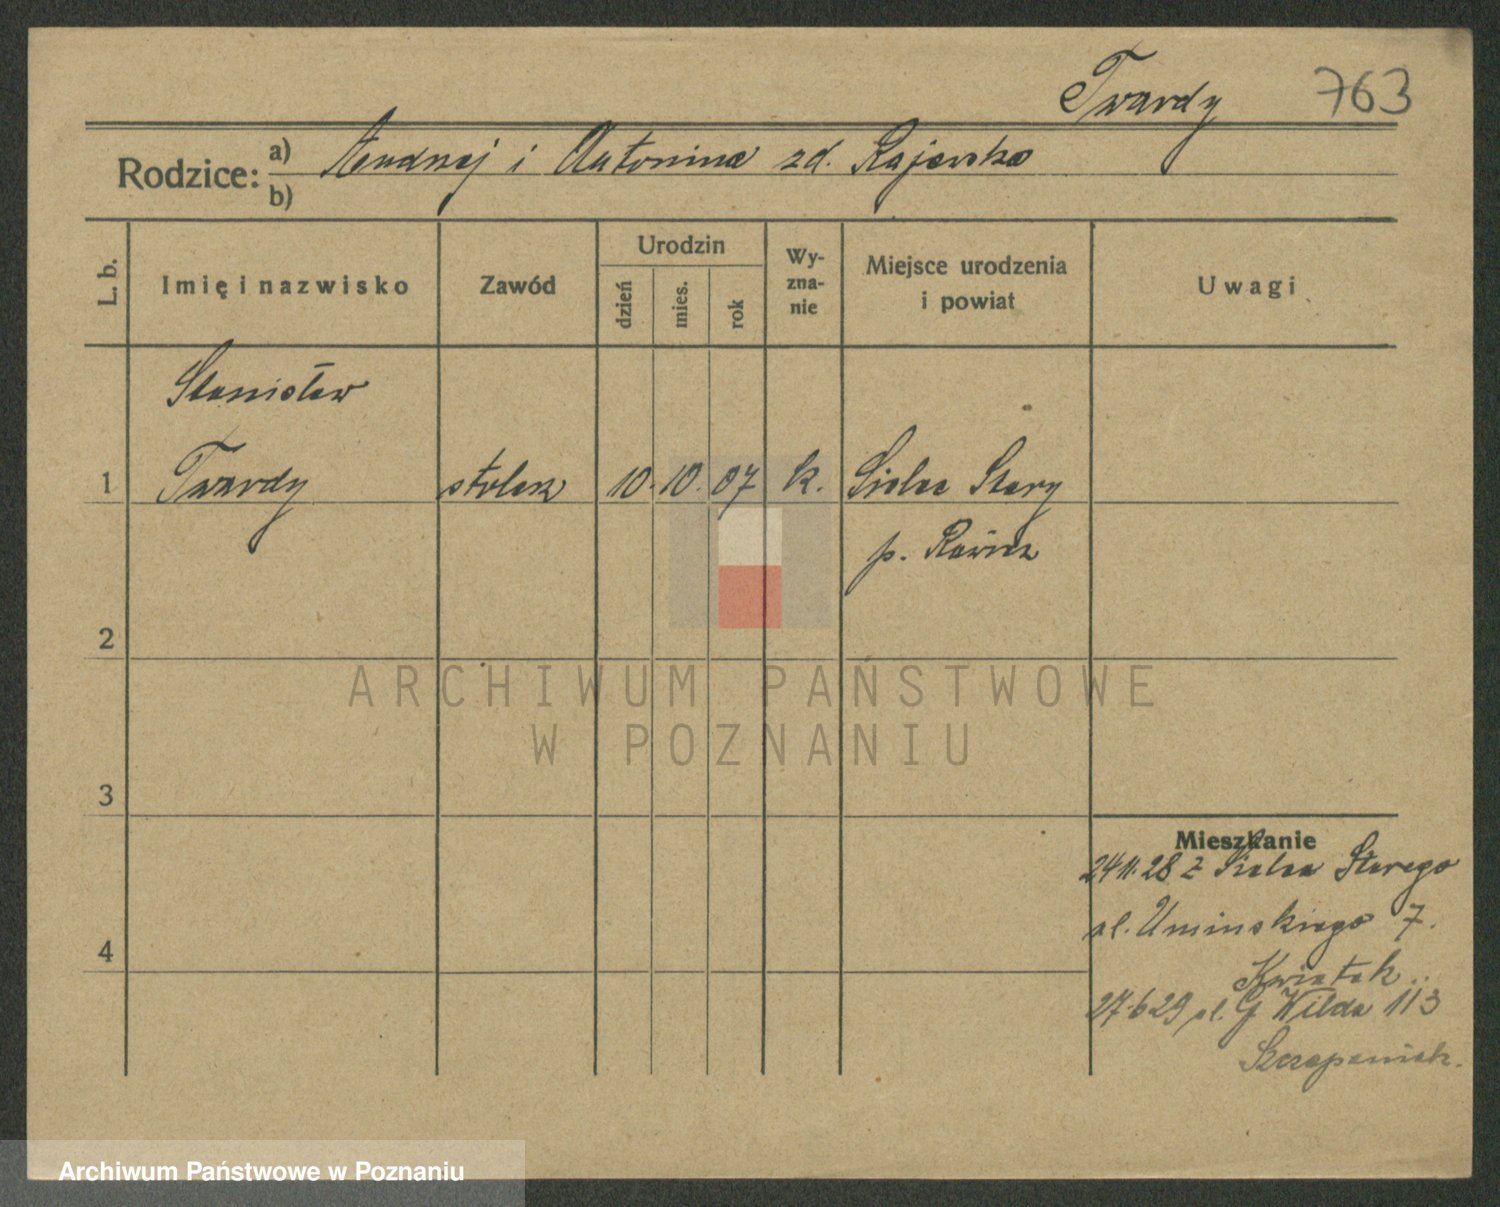 Twardy 763
Rodzice: a) Andrzej i Antonina zd. Rajewska
b)
L. b. Imię i nazwisko Zawód Urodzin dzień mies. rok Wy-zna-nie Miejsce urodzenia i powiat Uwagi
Stanisław
1 Twardy stolarz 10. 10. 07 k. Sielec Stary
p. Rawicz
2
ARCHIWUM PAŃSTWOWE
W POZNANIU
3
Mieszkanie
24.11.28 z Sielca Starego
ul. Umińskiego 7.
4
Kwiatek
27.6.29 ul. G Wilda 113
Szczepaniak.
Archiwum Państwowe w Poznaniu